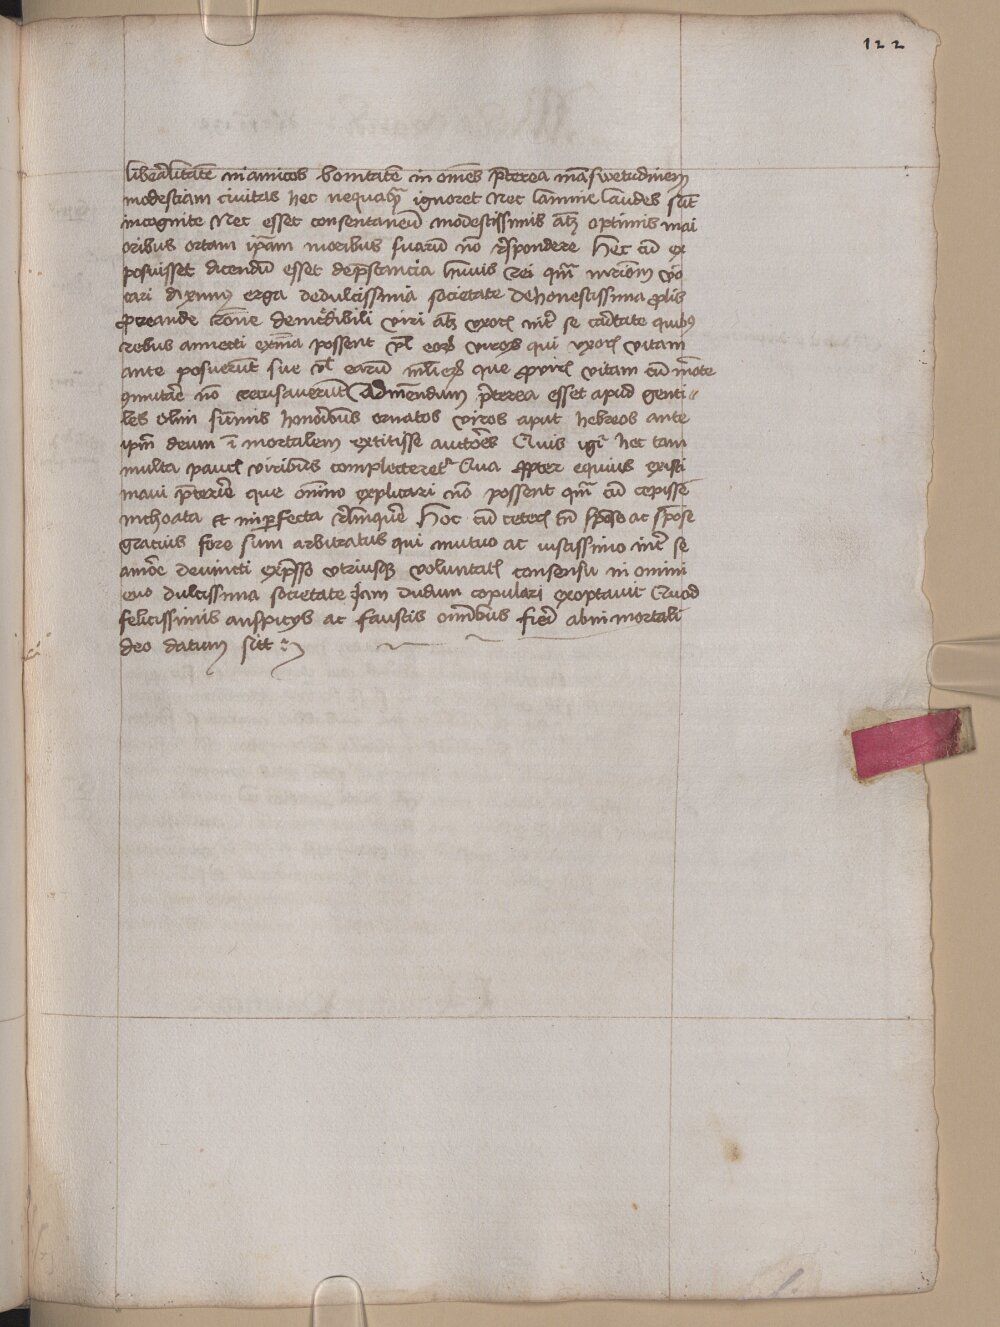 122
liberalitatē in amicos bonitatē in om̄es p̄terea māswetudinem
modestiam civitas hec nequaq̄ ignoret Nec lamine laudes sūt
incognite Nec esset consentaneū modestissimis atq̨ optimis mai
oribus ortam ip̄am moribus suarū nō r̄spondere Hec cū ex
posuisset dicendū esset de p̄stancia huius rei qm̄ mr̄iom̄ vo
cari diximus erga de dulcissima societate de honestissima ꝓlis
ꝓcreande r̄one de incredibili viri atq̨ vxoris int̄ se caritate quibus
rebus annecti exīa possent vl̄ eoꝝ viroꝝ qui vxoris vitam
ante posuerūt sue vl̄ earū ml̄ieꝝ que ꝓ viris vitam cū morte
ꝯmutare nō recusaverūt Admēndum p̄terea esset apud genti⸗
les olim sūmis honoribus ornatos viros aput hebreos ante
ip̄m deum ī mortalem extitisse auctōes Quis igr̄ hec tam
multa paucis viribus complecteret᷑ Qua ꝓpter equius existi
mavi p̄terire que omīno explicari nō possent qm̄ cū cepisse
inchoata et imperfecta r̄linquere Hoc cū ceteris tū sponso ac sponse
gracius fore sum arbitratus qui mutuo ac iustissimo int̄ se
amore devincti exp̄sso vtriusq̨ voluntatis consensu in omini
evo dulcissima societate iam dudum copulari exoptavit Quod
felicissimis auspicijs ac faustis om̄ibus fieri ab in mortali
deo datum sitt